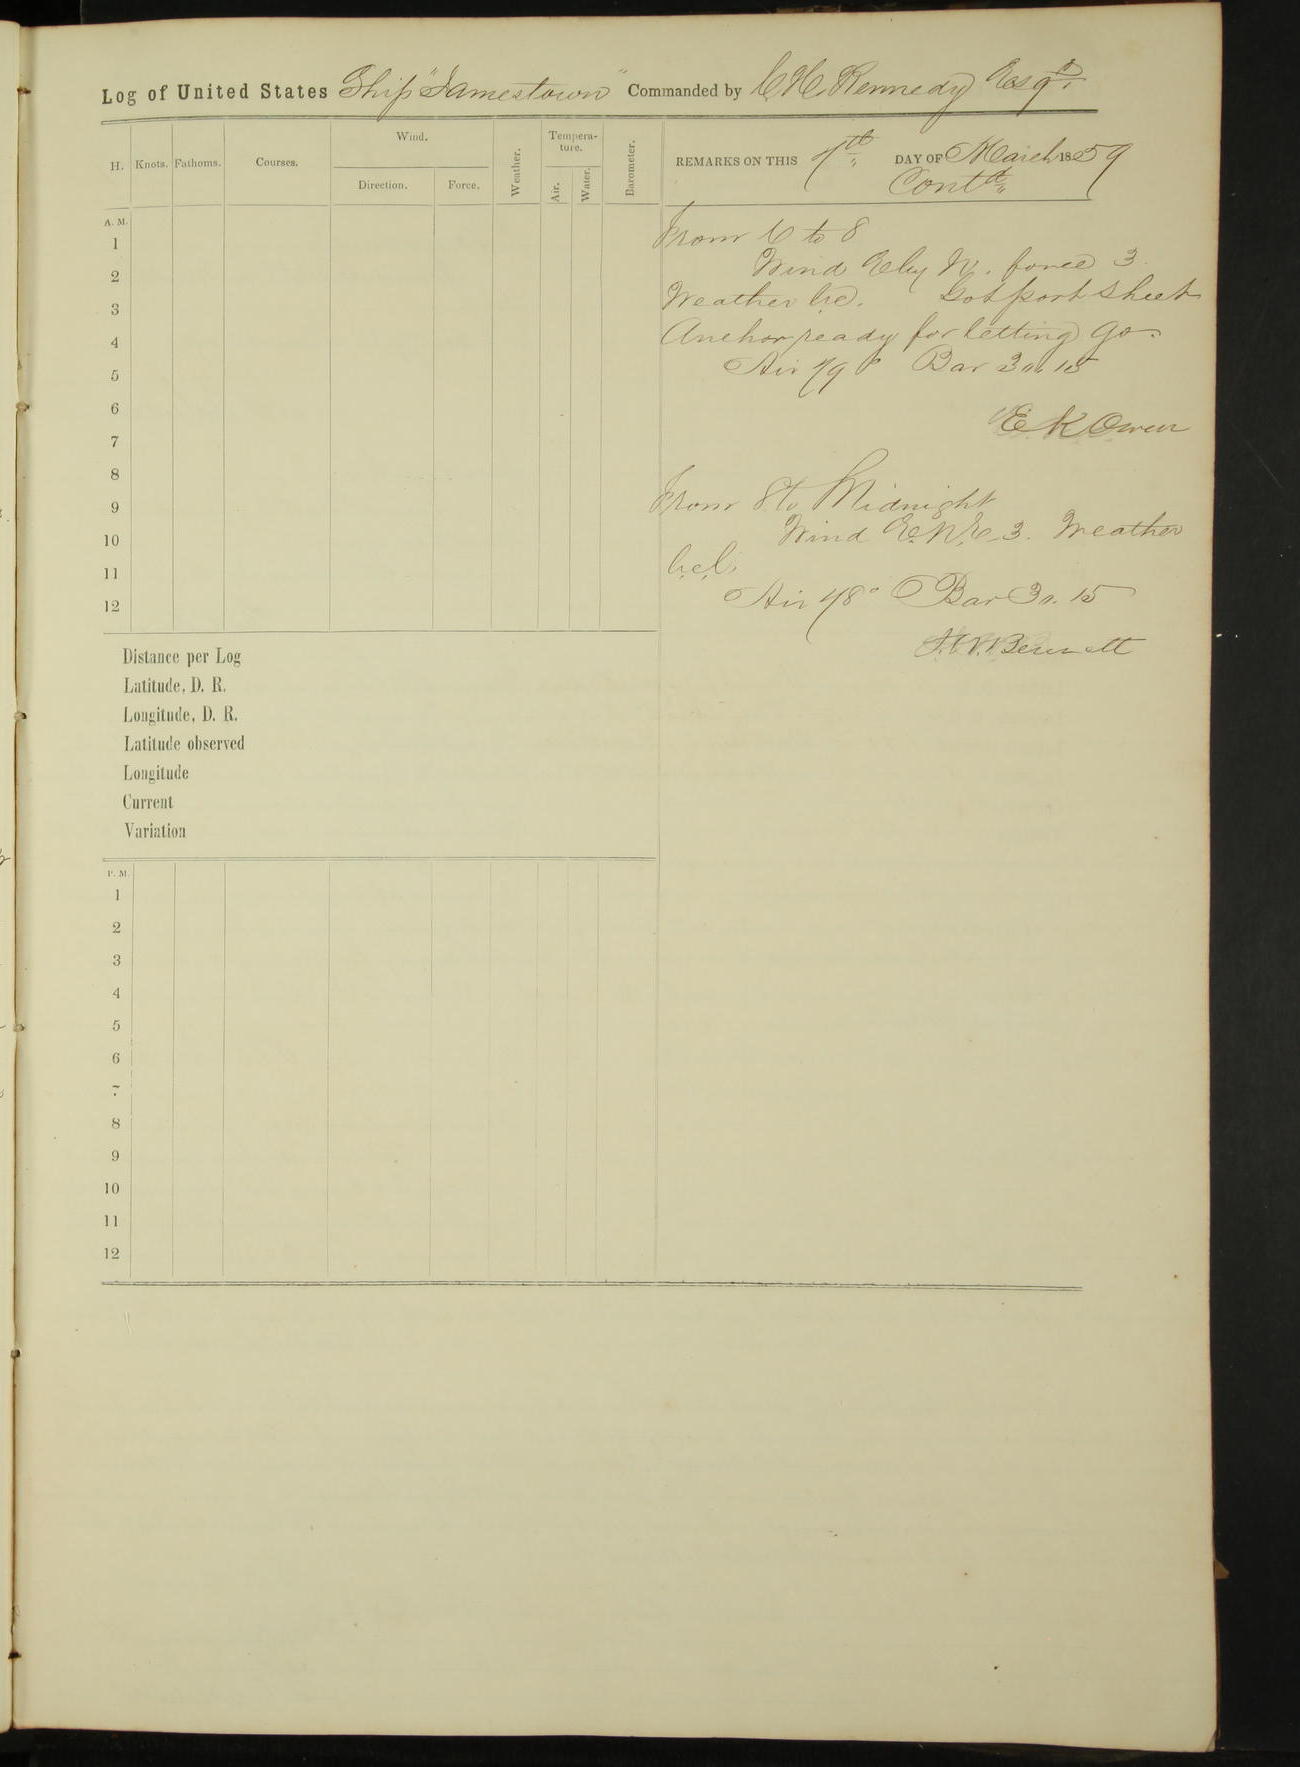 Log of United States Ship "Jamestown" Commanded by C H Kennedy Esqr.
H. Knots. Fathoms. Courses. Wind. Direction. Force. Weather. Tempera-ture. Air. Water. Barometer.
REMARKS ON THIS 7th DAY OF March 1859
Contd
A. M.
1
2
3
4
5
6
7
8
9
10
11
12
From 6 to 8
Wind E by N. force 3
Weather b.c. Got port sheet
Anchor ready for letting go.
Air 79° Bar 30.15
E K Owen
From 8 to Midnight
Wind E.N.E. 3. Weather
b.c.l.
Air 78° Bar 30.15
Bennett
Distance per Log
Latitude, D. R.
Longitude, D. R.
Latitude observed
Longitude
Current
Variation
P. M.
1
2
3
4
5
6
7
8
9
10
11
12